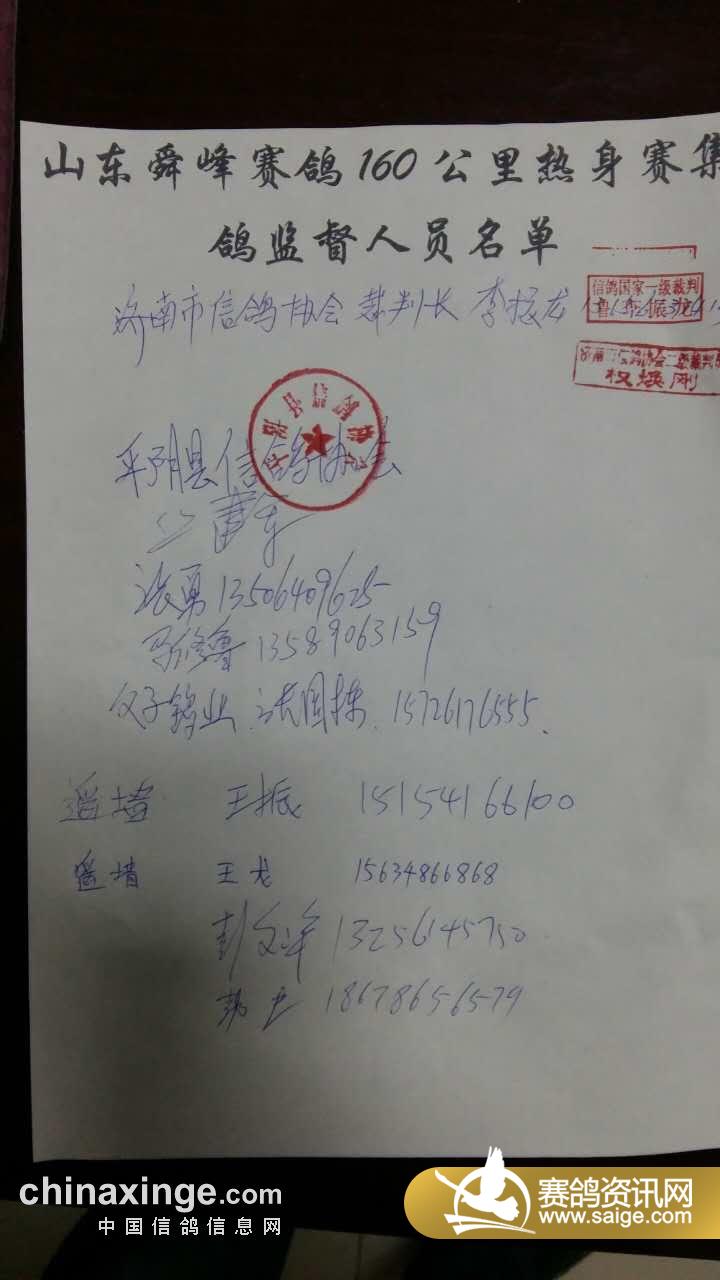 山东舜峰赛鸽160公里热身赛集
鸽监督人员名单
济南市信鸽协会 裁判长 李振龙
信鸽国家一级裁判
权焕刚
平阴县信鸽协会
张勇 13506409625
马修鲁 13589063159
父子鸽业 张国栋 15726176555
遥墙 王振 15154166100
遥墙 王龙 15634866868
彭文 13256145750
18678656579
chinaxinge.com
中国信鸽信息网
赛鸽资讯网
www.saige.com